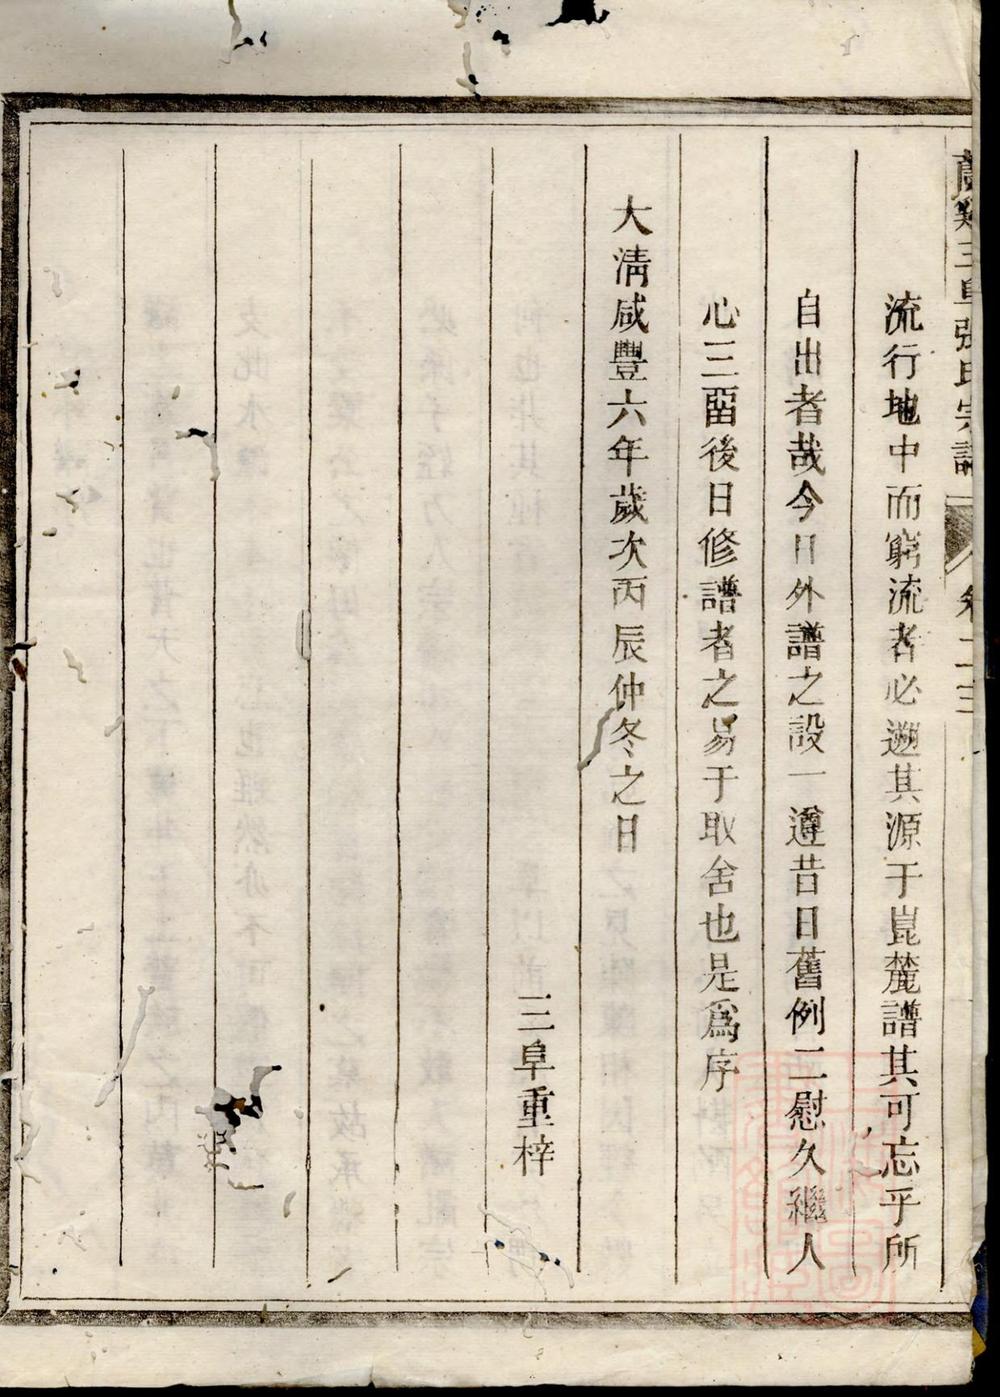 三阜張氏宗譜 卷二三
流行地中而窮流者必遡其源于崑麓譜其可忘乎所
自出者哉今日外譜之設一遵昔日舊例二慰久繼人
心三畱後日修譜者之易于取舍也是爲序
大清咸豐六年歲次丙辰仲冬之日
三阜重梓